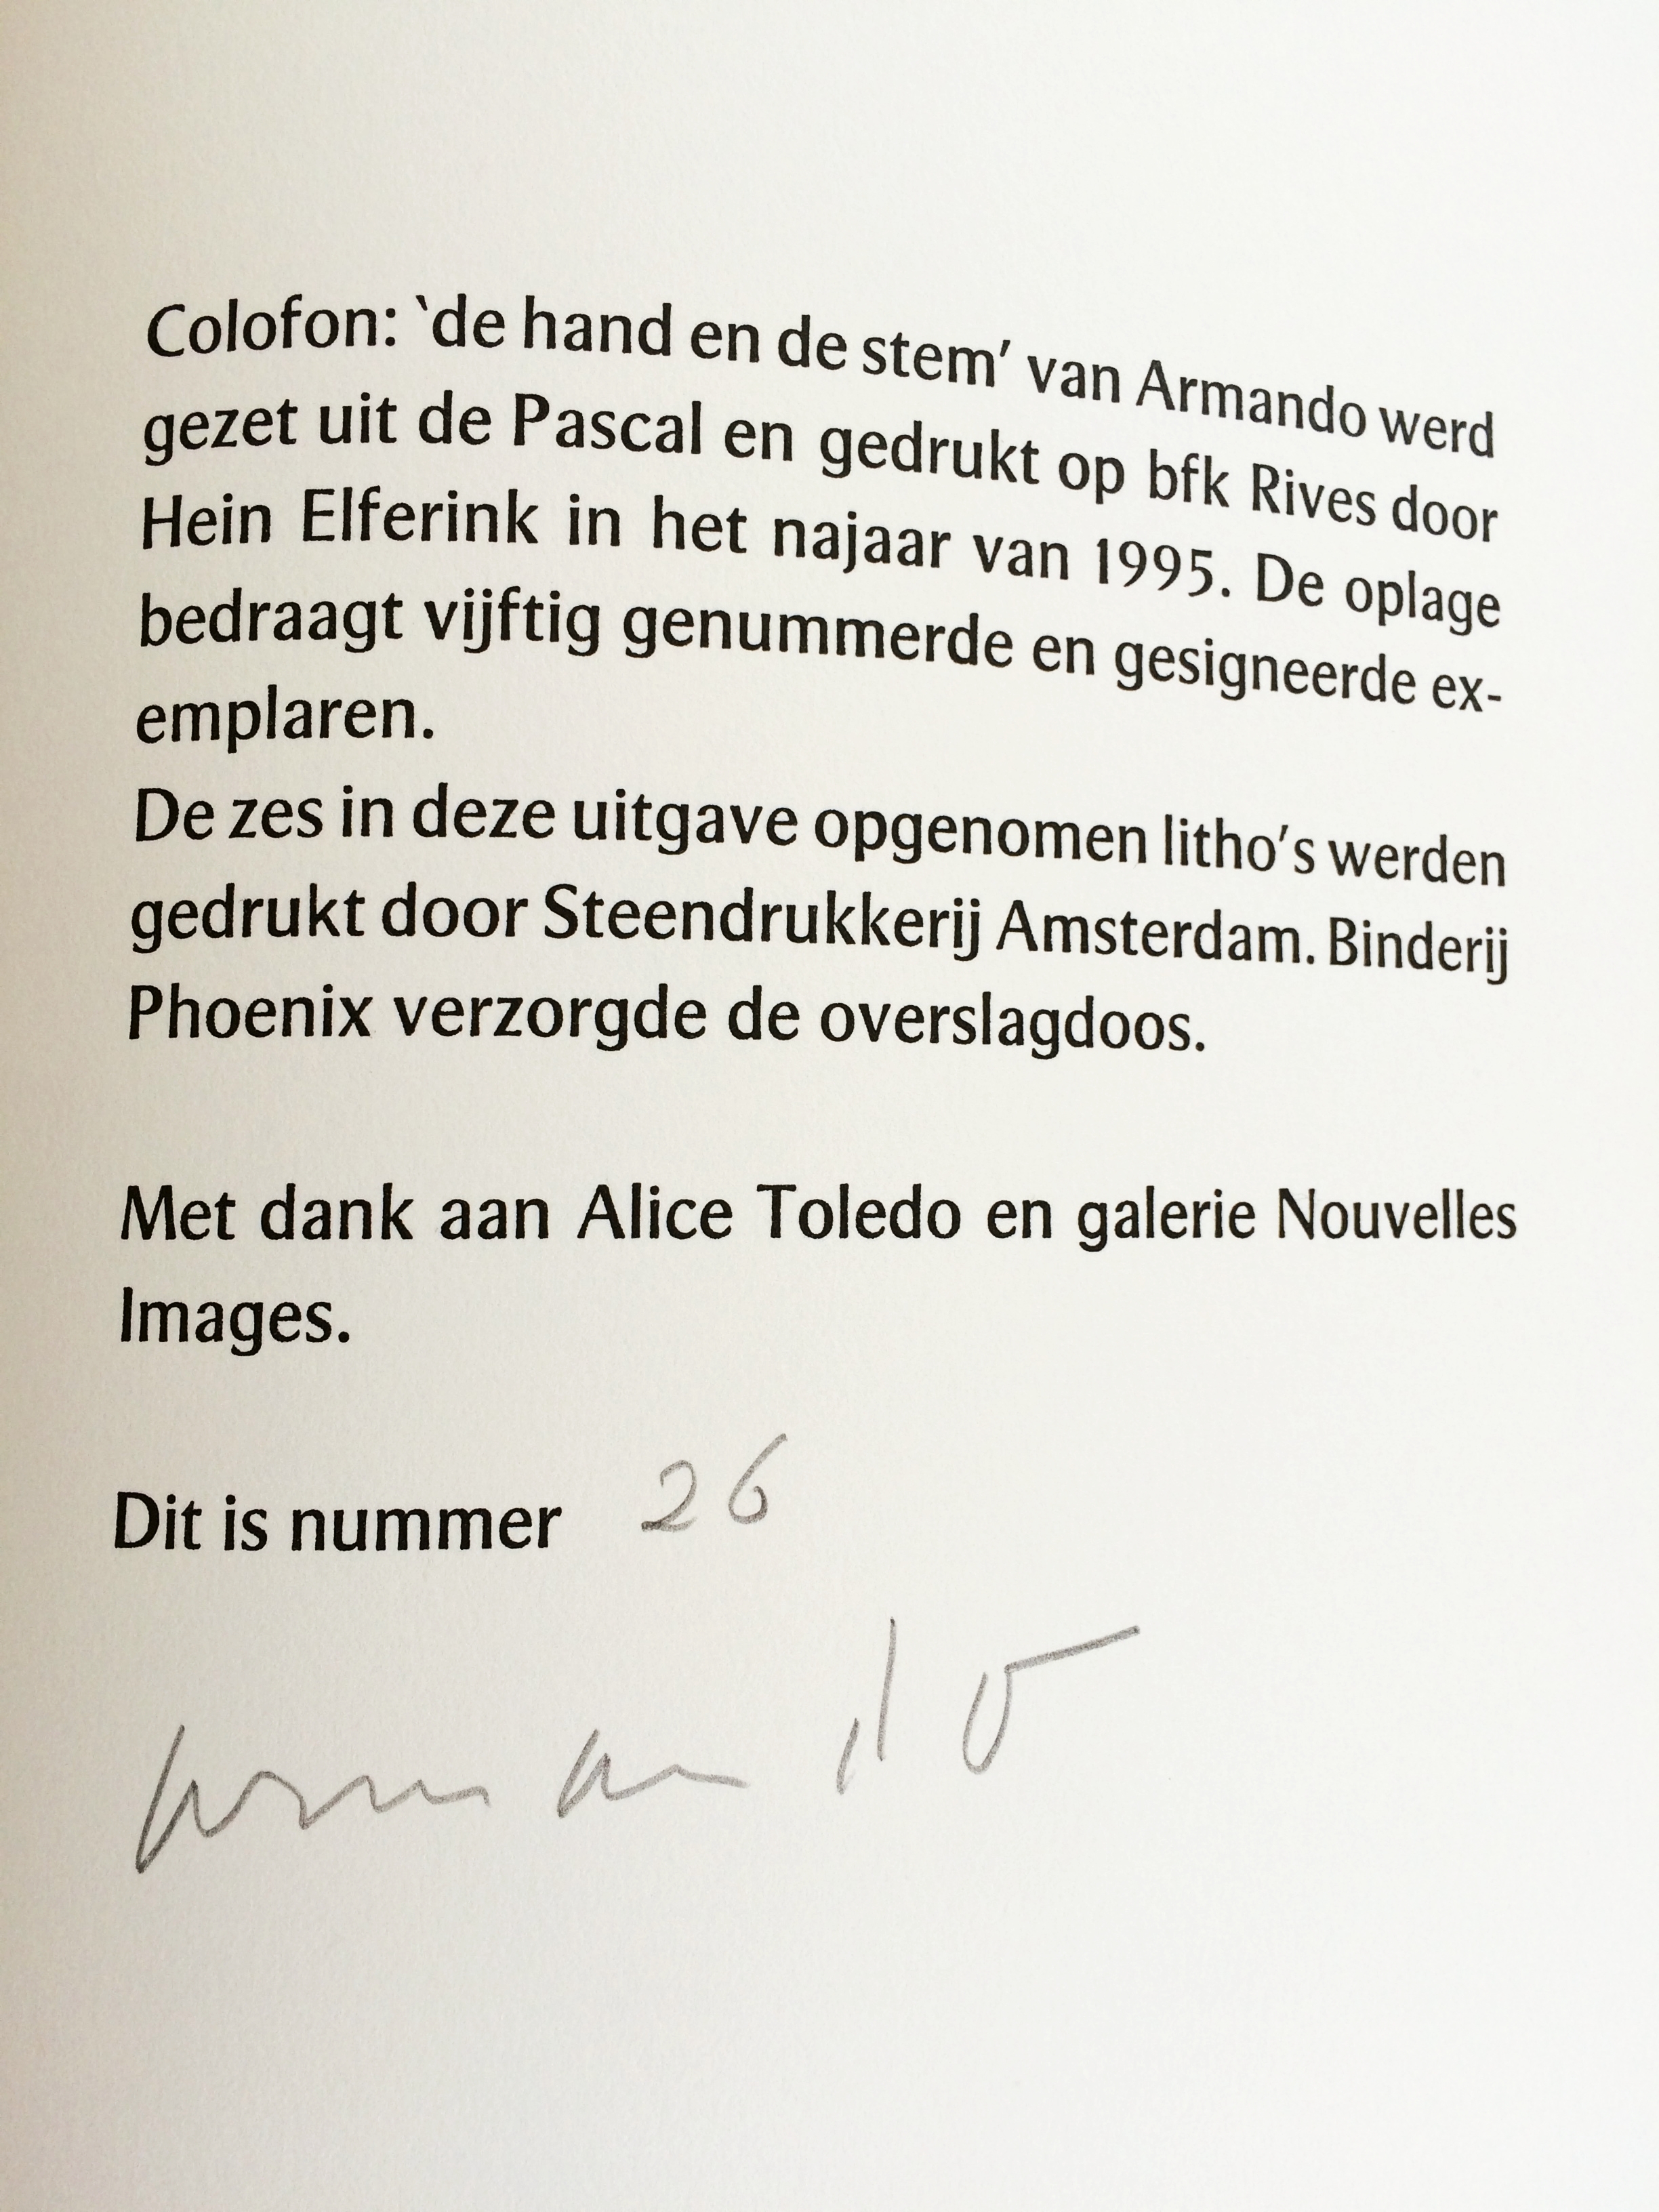 Colofon: ‘de hand en de stem’ van Armando werd
gezet uit de Pascal en gedrukt op bfk Rives door
Hein Elferink in het najaar van 1995. De oplage
bedraagt vijftig genummerde en gesigneerde ex-
emplaren.
De zes in deze uitgave opgenomen litho's werden
gedrukt door Steendrukkerij Amsterdam. Binderij
Phoenix verzorgde de overslagdoos.
Met dank aan Alice Toledo en galerie Nouvelles
Images.
Dit is nummer 26
armando